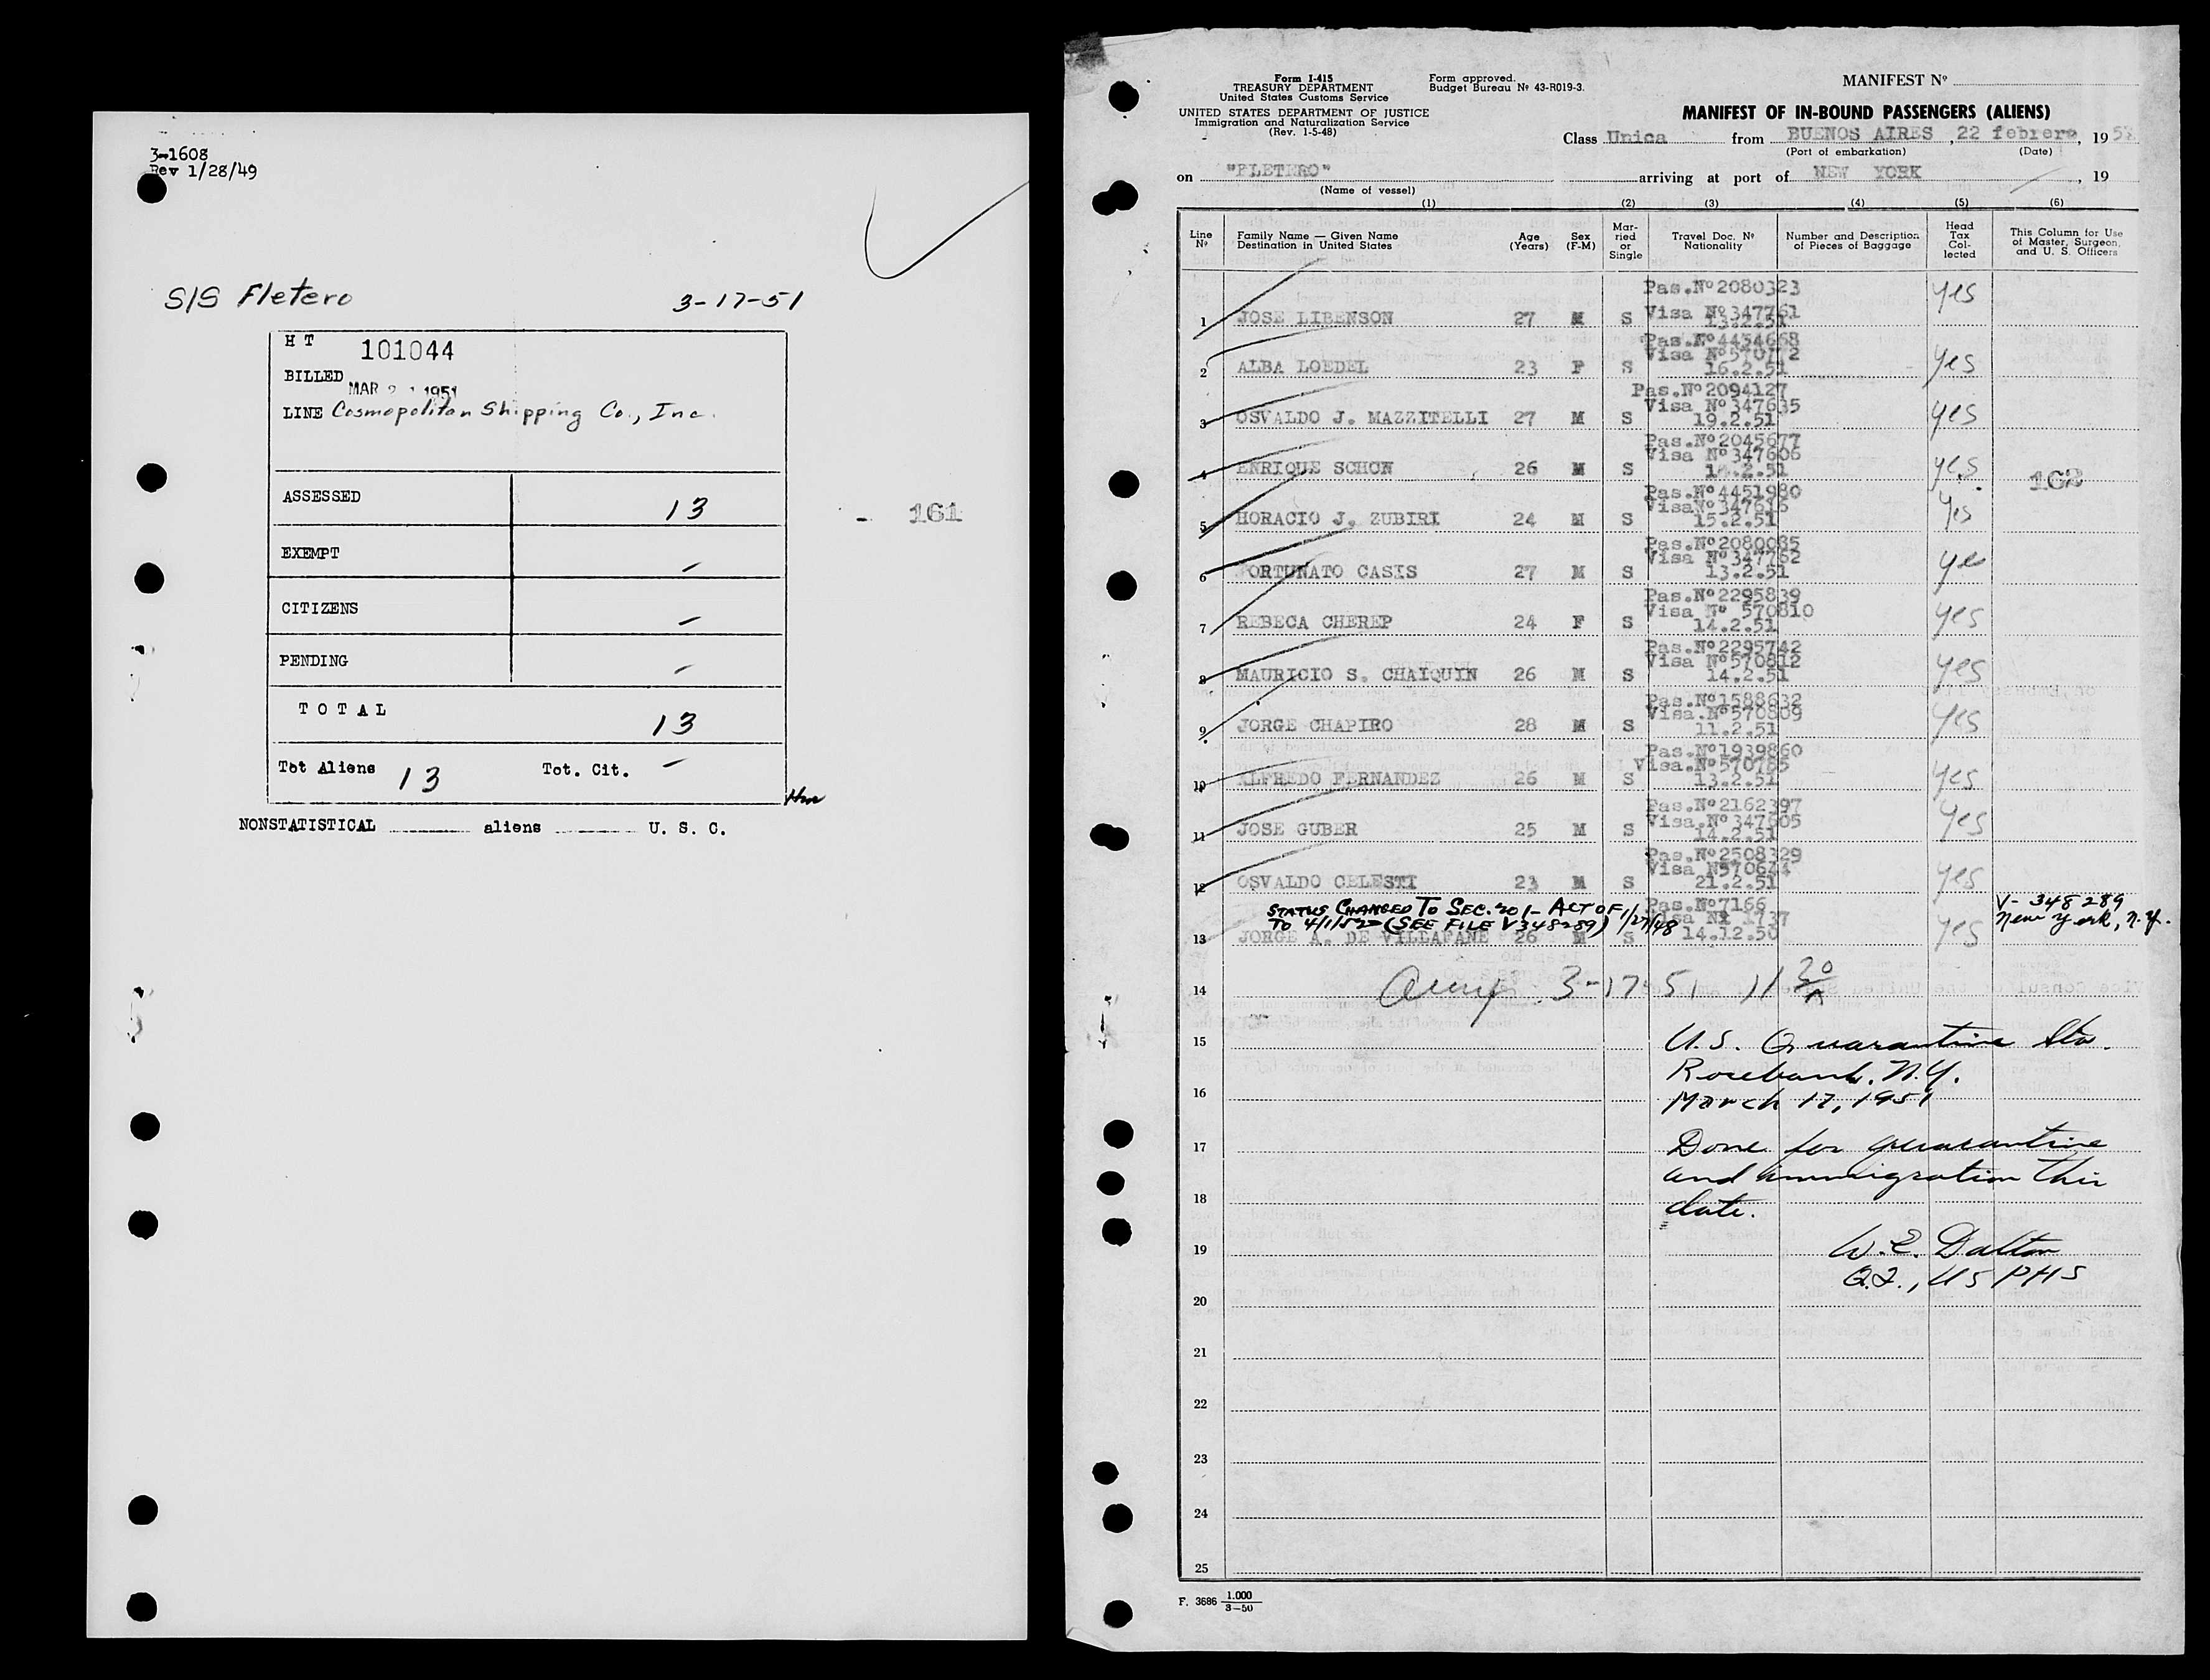 3-1608
Rev 1/28/49
S/S Fletero 3-17-51
H T 101044
BILLED MAR 1951
LINE Cosmopolitan Shipping Co., Inc.
ASSESSED 13
EXEMPT -
CITIZENS -
PENDING -
TOTAL 13
Tot Aliens 13 Tot. Cit. -
NONSTATISTICAL aliens U. S. C.
- 161
Form I-415
TREASURY DEPARTMENT
United States Customs Service
UNITED STATES DEPARTMENT OF JUSTICE
Immigration and Naturalization Service
(Rev. 1-5-48)
Form approved.
Budget Bureau Nº 43-R019-3.
MANIFEST Nº
MANIFEST OF IN-BOUND PASSENGERS (ALIENS)
Class Unica from BUENOS AIRES, 22 febrero, 19
(Port of embarkation) (Date)
on "FLETERO" arriving at port of NEW YORK, 19
(Name of vessel)
(1) (2) (3) (4) (5) (6)
Line Nº
Family Name — Given Name
Destination in United States
Age (Years)
Sex (F-M)
Mar-
ried
or
Single
Travel Doc. Nº
Nationality
Number and Description
of Pieces of Baggage
Head
Tax
Col-
lected
This Column for Use
of Master, Surgeon,
and U. S. Officers
Pas.Nº2080323 yes
1 JOSE LIBENSON 27 M S Visa Nº347761
13.2.51
Pas.Nº4454668
Visa Nº570772
2 ALBA LOEDEL 23 F S 16.2.51 yes
Pas.Nº2094127
Visa Nº347635
3 OSVALDO J. MAZZITELLI 27 M S 19.2.51 yes
Pas.Nº2045677
Visa Nº347606
4 ENRIQUE SCHON 26 M S .2.51 yes
162
Pas.Nº4451980
VisaNº347616
5 HORACIO J. ZUBIRI 24 M S 15.2.51 yes
Pas.Nº2080085
Visa Nº347762
6 FORTUNATO CASIS 27 M S 13.2.51 yes
Pas.Nº2295839
Visa Nº 570810
7 REBECA CHEREP 24 F S 14.2.51 yes
Pas.Nº2295742
Visa Nº570812
8 MAURICIO S. CHAIQUIN 26 M S 14.2.51 yes
Pas.Nº1588632
Visa.Nº570809
9 JORGE CHAPIRO 28 M S 11.2.51 yes
Pas.Nº1939860
Visa.Nº570785
10 ALFREDO FERNANDEZ 26 M S 13.2.51 yes
Pas.Nº2162397
Visa.Nº347605
11 JOSE GUBER 25 M S 14.2.51 yes
Pas.Nº2508329
Visa Nº570644
12 OSVALDO CELESTI 23 M S 21.2.51 yes
STATUS CHANGED TO SEC. 201 - ACT OF 1/27/48
TO 4/1/52 (SEE FILE V348289)
Pas.Nº7166
Visa Nº 1737
V-348289
New York, N.Y.
13 JORGE A. DE VILLAFANE 26 M S 14.12.50 yes
14 3-17-51 11 30/A
15 U.S. Quarantine Sta.
Rosebank, N.Y.
16 March 17, 1951
17 Done for quarantine
and immigration this
18 date.
19 W.E. Dalton
Q.I., USPHS
20
21
22
23
24
25
F. 3686 1.000
3—50